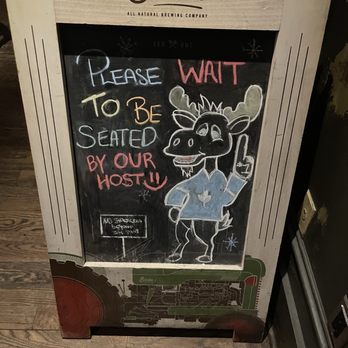 ALL NATURAL BREWING COMPANY
PLEASE WAIT
TO BE
SEATED
BY OUR
HOST
NO